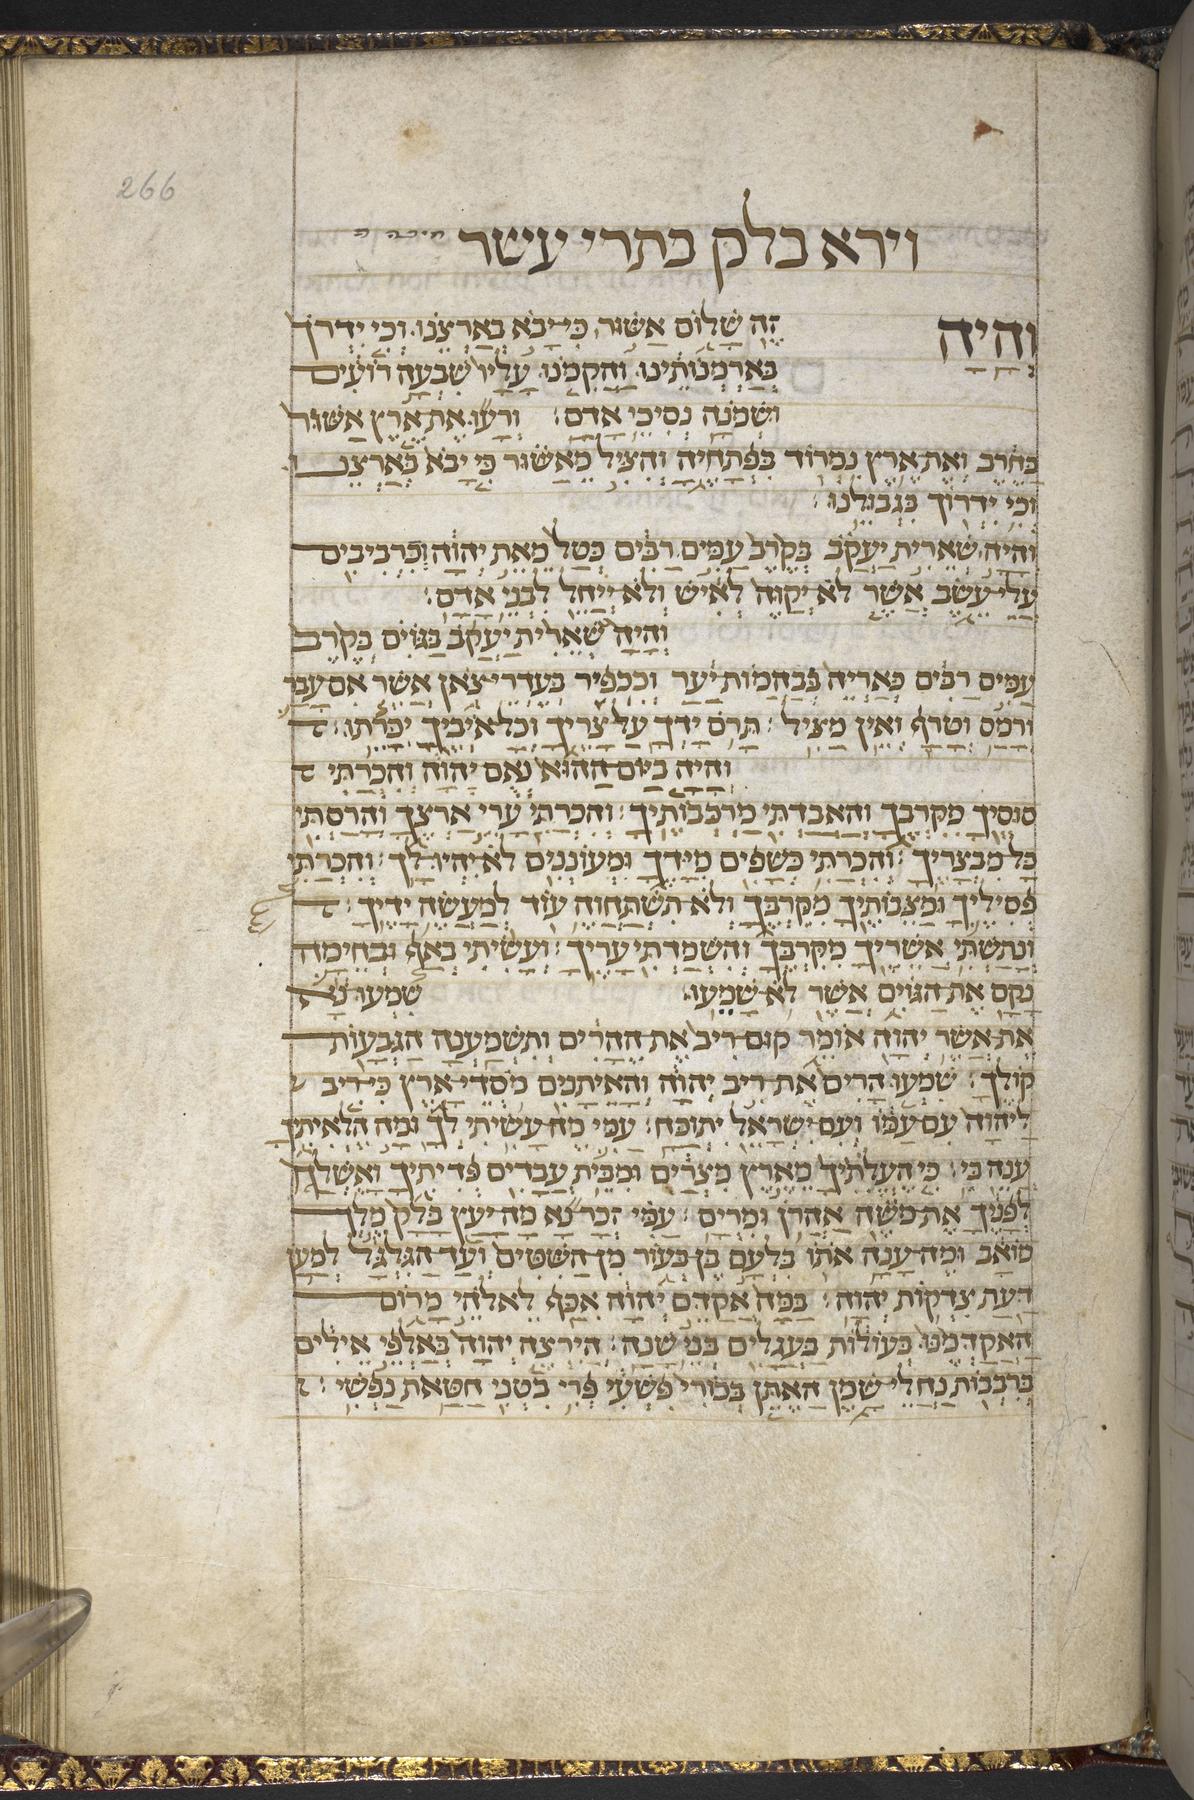 266
וירא בלק בתרי עשר
והיה
זה שלום אשור כי יבא בארצנו וכי ידרך
בארמנותינו והקמנו עליו שבעה רועים
ושמנה נסיכי אדם: ורעו את ארץ אשור
בחרב ואת ארץ נמרוד בפתחיה והציל מאשור כי יבא בארצנו
וכי ידרוך בגבולנו:
והיה שארית יעקב בקרב עמים רבים כטל מאת יהוה וכרביבים
עלי עשב אשר לא יקוה לאיש ולא ייחל לבני אדם:
והיה שארית יעקב בגוים בקרב
עמים רבים כאריה בבהמות יער וככפיר בעדרי צאן אשר אם עבר
ורמס וטרף ואין מציל: תרם ידך על צריך וכל איביך יכרתו:
והיה ביום ההוא נאם יהוה והכרתי
סוסיך מקרבך והאבדתי מרכבותיך: והכרתי ערי ארצך והרסתי
כל מבצריך: והכרתי כשפים מידך ומעוננים לא יהיו לך: והכרתי
פסיליך ומצבותיך מקרבך ולא תשתחוה עוד למעשה ידיך:
ונתשתי אשריך מקרבך והשמדתי עריך: ועשיתי באף ובחימה
נקם את הגוים אשר לא שמעו: שמעו נא
את אשר יהוה אומר קום ריב את ההרים ותשמענה הגבעות
קולך: שמעו הרים את ריב יהוה והאיתנים מסדי ארץ כי ריב
ליהוה עם עמו ועם ישראל יתוכח: עמי מה עשיתי לך ומה הלאיתיך
ענה בי: כי העלתיך מארץ מצרים ומבית עבדים פדיתיך ואשלח
לפניך את משה אהרן ומרים: עמי זכר נא מה יעץ בלק מלך
מואב ומה ענה אתו בלעם בן בעור מן השטים ועד הגלגל למען
דעת צדקות יהוה: במה אקדם יהוה אכף לאלהי מרום
האקדמנו בעולות בעגלים בני שנה: הירצה יהוה באלפי אילים
ברבבות נחלי שמן האתן בכורי פשעי פרי בטני חטאת נפשי: